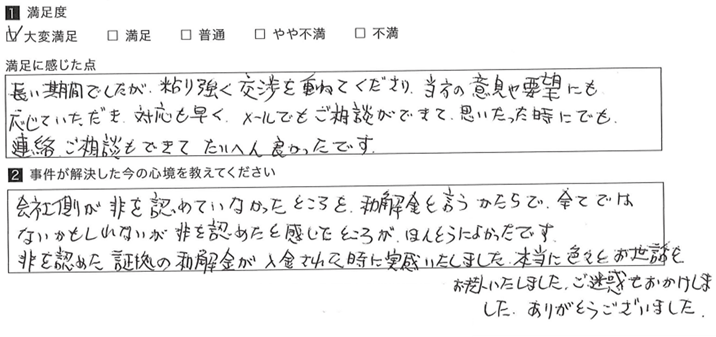 1 満足度
☑ 大変満足 □ 満足 □ 普通 □ やや不満 □ 不満
満足に感じた点
長い期間でしたが、粘り強く交渉を重ねてくださり、当方の意見や要望にも
応じていただき、対応も早く、メールでもご相談ができて、思いたった時にでも、
連絡、ご相談もできてたいへん良かったです。
2 事件が解決した今の心境を教えてください
会社側が非を認めていなかったところを、和解金と言うかたちで、全てでは
ないかもしれないが非を認めたと感じたところが、ほんとうによかったです。
非を認めた証拠の和解金が入金されて時に実感いたしました。本当に色々とお世話を
お掛いたしました。ご迷惑をおかけしま
した。ありがとうございました。